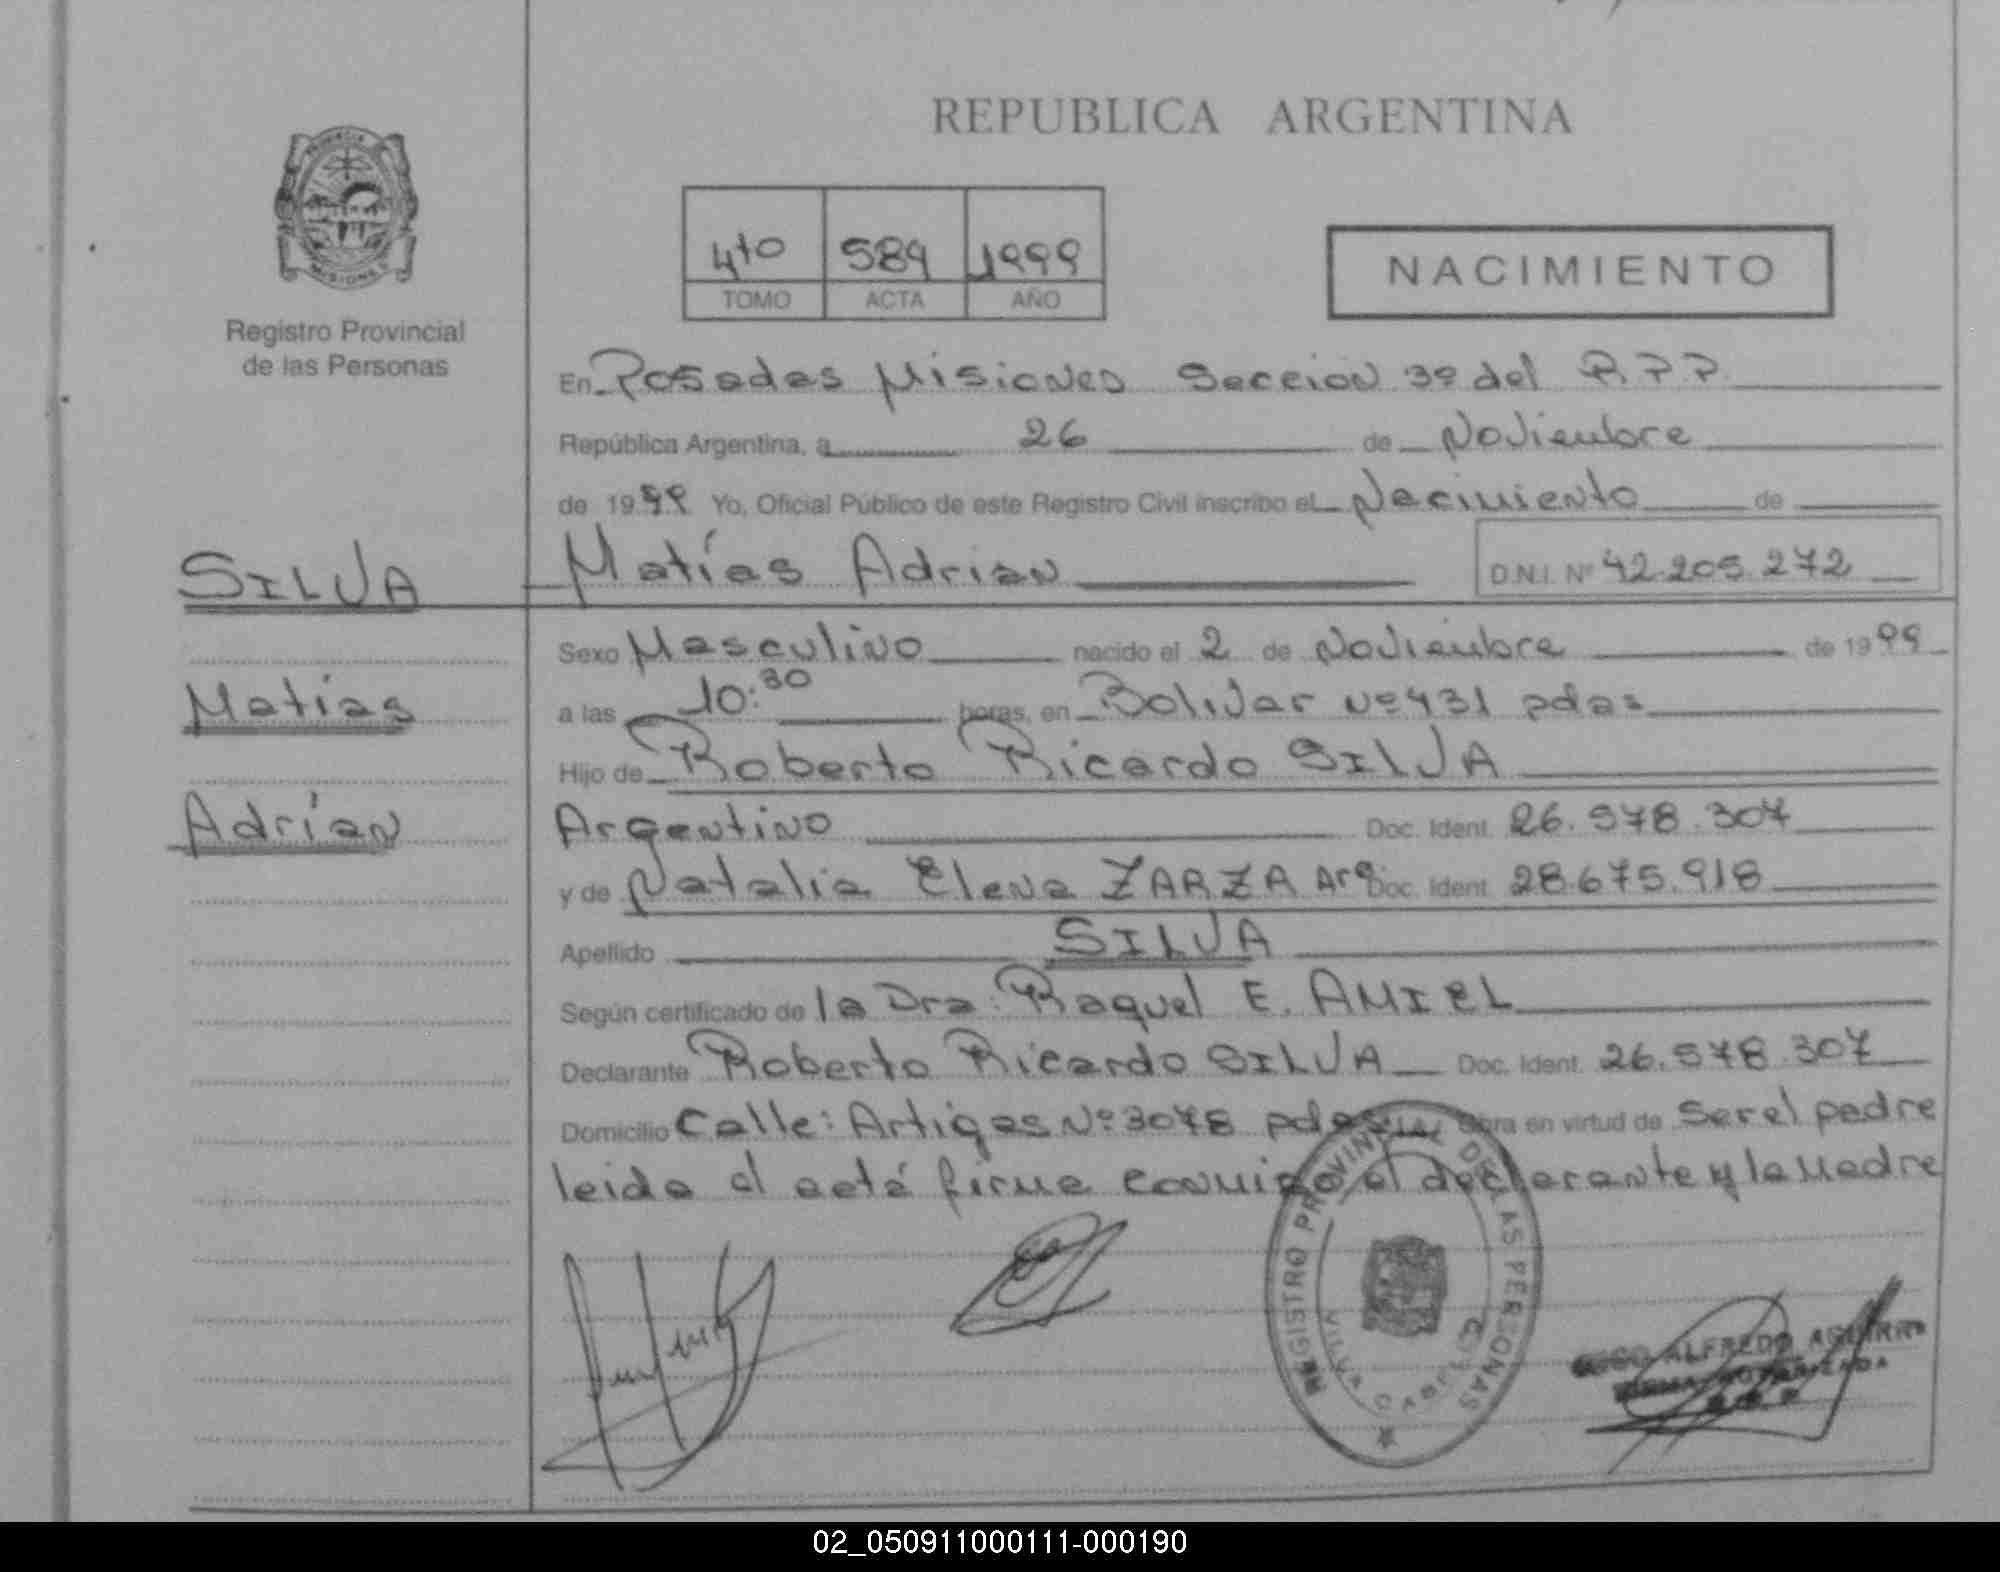 REPUBLICA ARGENTINA
PROVINCIA
MISIONES
Registro Provincial
de las Personas
4to 589 1999
TOMO ACTA AÑO
NACIMIENTO
En Posadas Misiones Seccion 3º del R.P.P.
República Argentina, a 26 de Noviembre
de 1999 Yo, Oficial Público de este Registro Civil inscribo el Nacimiento de
SILVA Matías Adrian D.N.I. Nº 42.205.272
Sexo Masculino nacido el 2 de Noviembre de 1999
Matías
a las 10:30 horas, en Bolivar Nº 431 pdas
Hijo de Roberto Ricardo SILVA
Adrían
Argentino Doc. Ident. 26.578.307
y de Natalia Elena ZARZA Arg. Doc. Ident. 28.675.918
Apellido SILVA
Según certificado de la Dra. Raquel E. AMIEL
Declarante Roberto Ricardo SILVA Doc. Ident. 26.578.307
Domicilio Calle: Artigas Nº 3078 pdas Obra en virtud de Ser el padre
leida el acta firma conmigo el declarante y la Madre
REGISTRO PROVINCIAL DE LAS PERSONAS
VILLA CABELLO
ALFREDO AGUIRRE
02_050911000111-000190